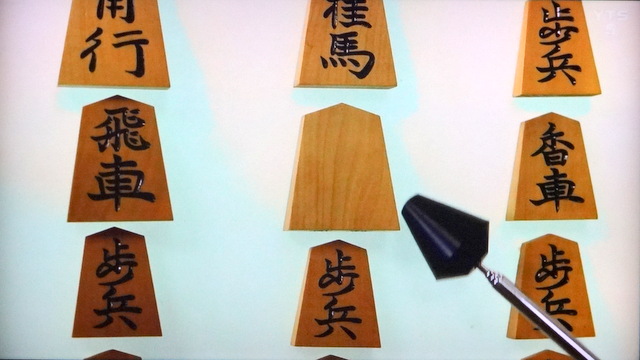 角行
桂馬
歩兵
飛車
香車
歩兵
歩兵
歩兵
YTS